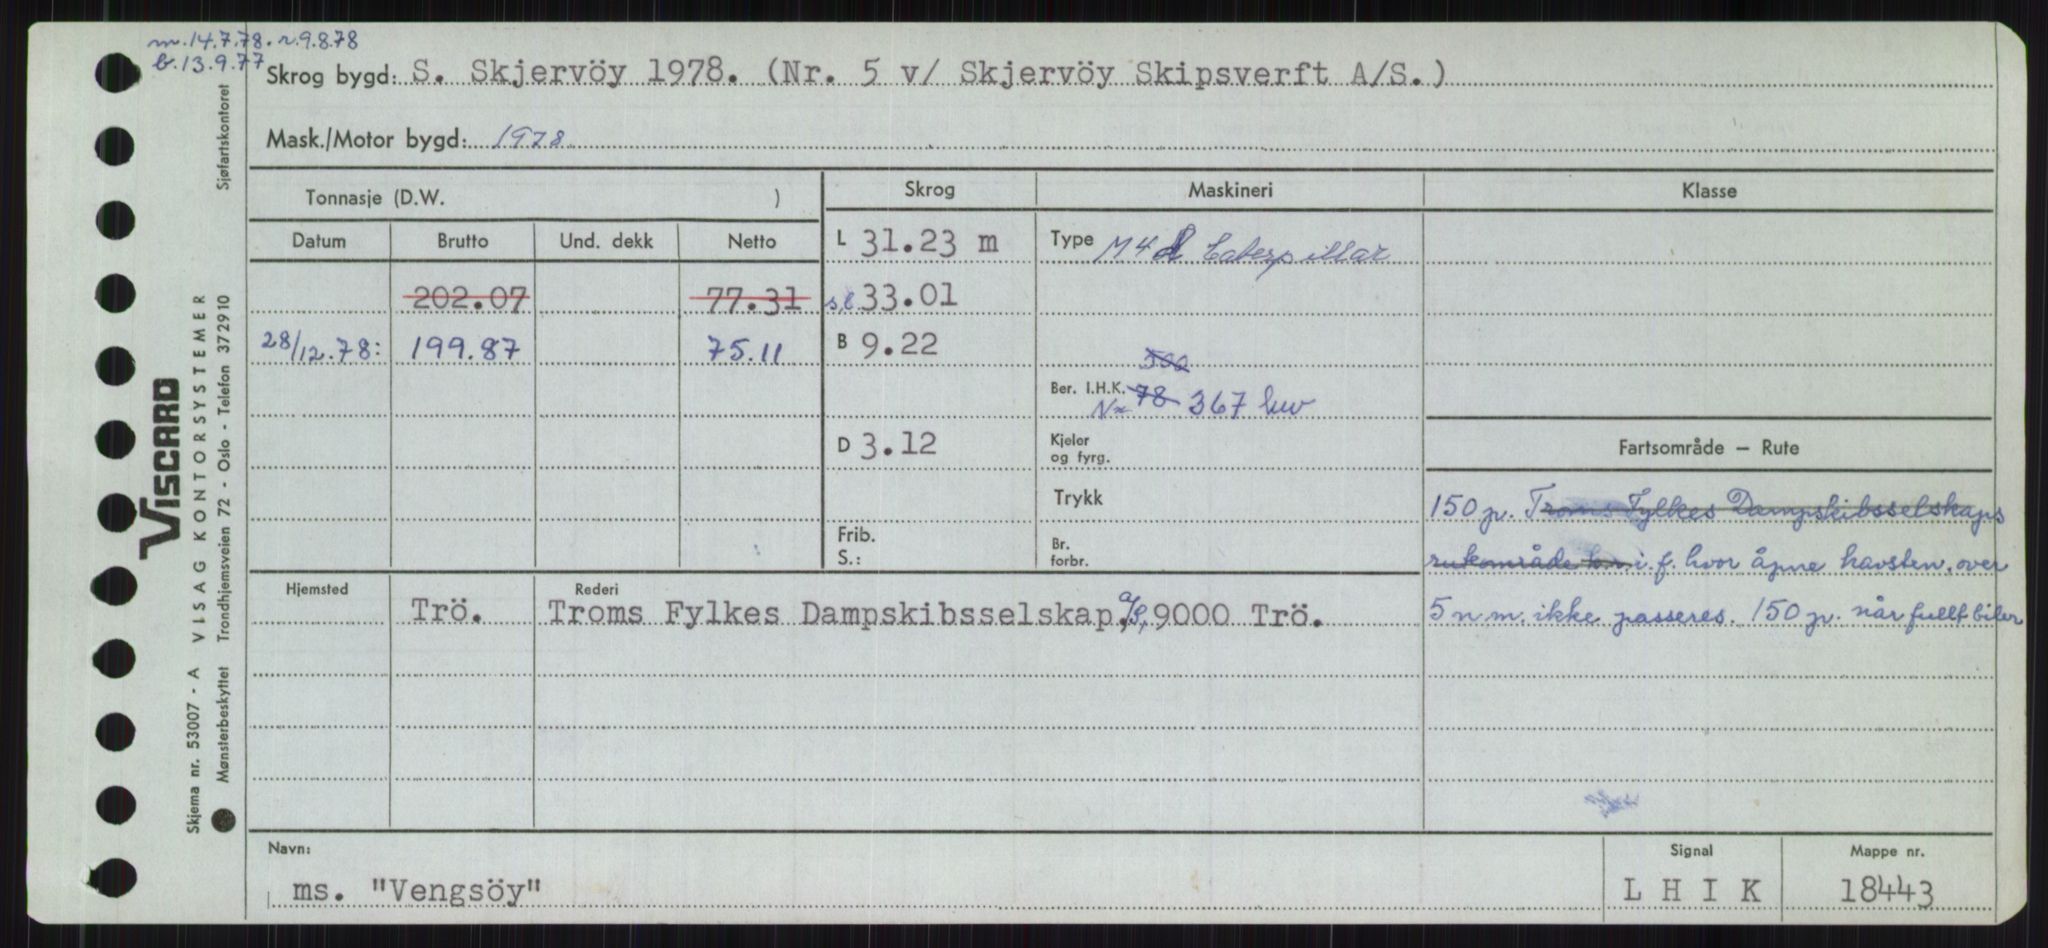 m. 14.7.78. r. 9.8.78
b. 13.9.77
Skrog bygd: S. Skjervöy 1978. (Nr. 5 v/ Skjervöy Skipsverft A/S.)
Mask./Motor bygd: 1978
Tonnasje (D.W. )
Skrog Maskineri Klasse
Datum Brutto Und. dekk Netto
L 31.23 m Type M4 Caterpillar
202.07 77.31 s.l 33.01
28/12.78: 199.87 75.11 B 9.22
500
Ber. I.H.K. 78 367 kw
D 3.12 Kjeler og fyrg.
Fartsområde — Rute
Trykk
Frib.
S.:
Br. forbr.
150 p. Troms Fylkes Dampskibsselskaps
rukområde i.f. hvor åpne havstrn. over
5 n.m. ikke passeres. 150 p. når fullt biler
Hjemsted Rederi
Trö. Troms Fylkes Dampskibsselskap, A/S, 9000 Trö.
Navn: ms. "Vengsöy"
Signal L H I K
Mappe nr. 18443
VISCARD
VISAG KONTORSYSTEMER
Skjema nr. 53007 - A
Mønsterbeskyttet Trondhjemsveien 72 - Oslo - Telefon 372910
Sjøfartskontoret